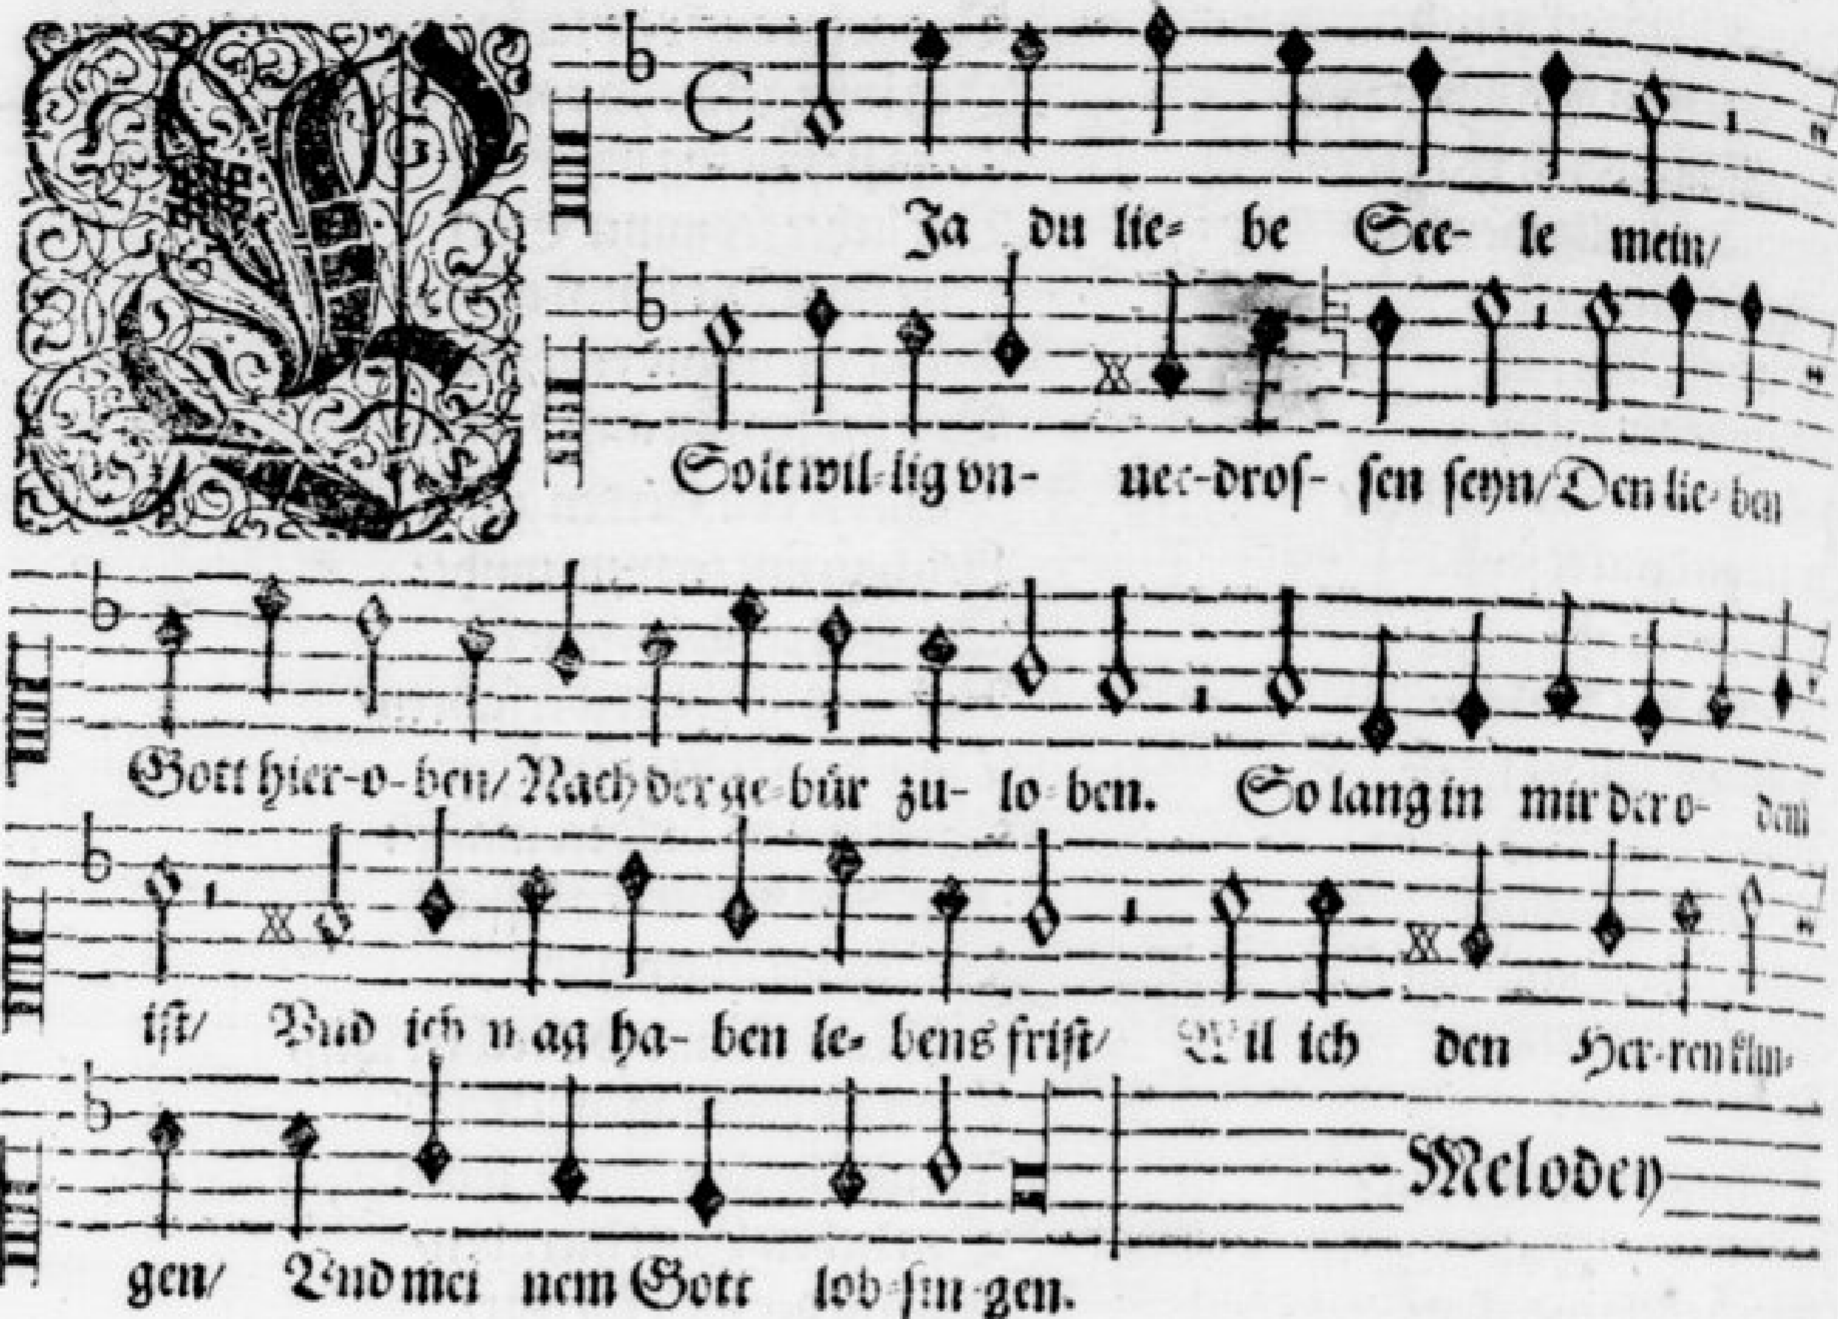 Ja du lie- be See- le mein/
Solt wil-lig vn- ver-dros- sen seyn/ Den lie- ben
Gott hier-o-ben/ Nach der ge-bür zu- lo-ben. So lang in mir der o- dem
ist/ Vnd ich mag ha- ben le- bens frist/ Wil ich den Her-ren klin-
gen/ Vnd mei nem Gott lob-sin-gen.
Melodey